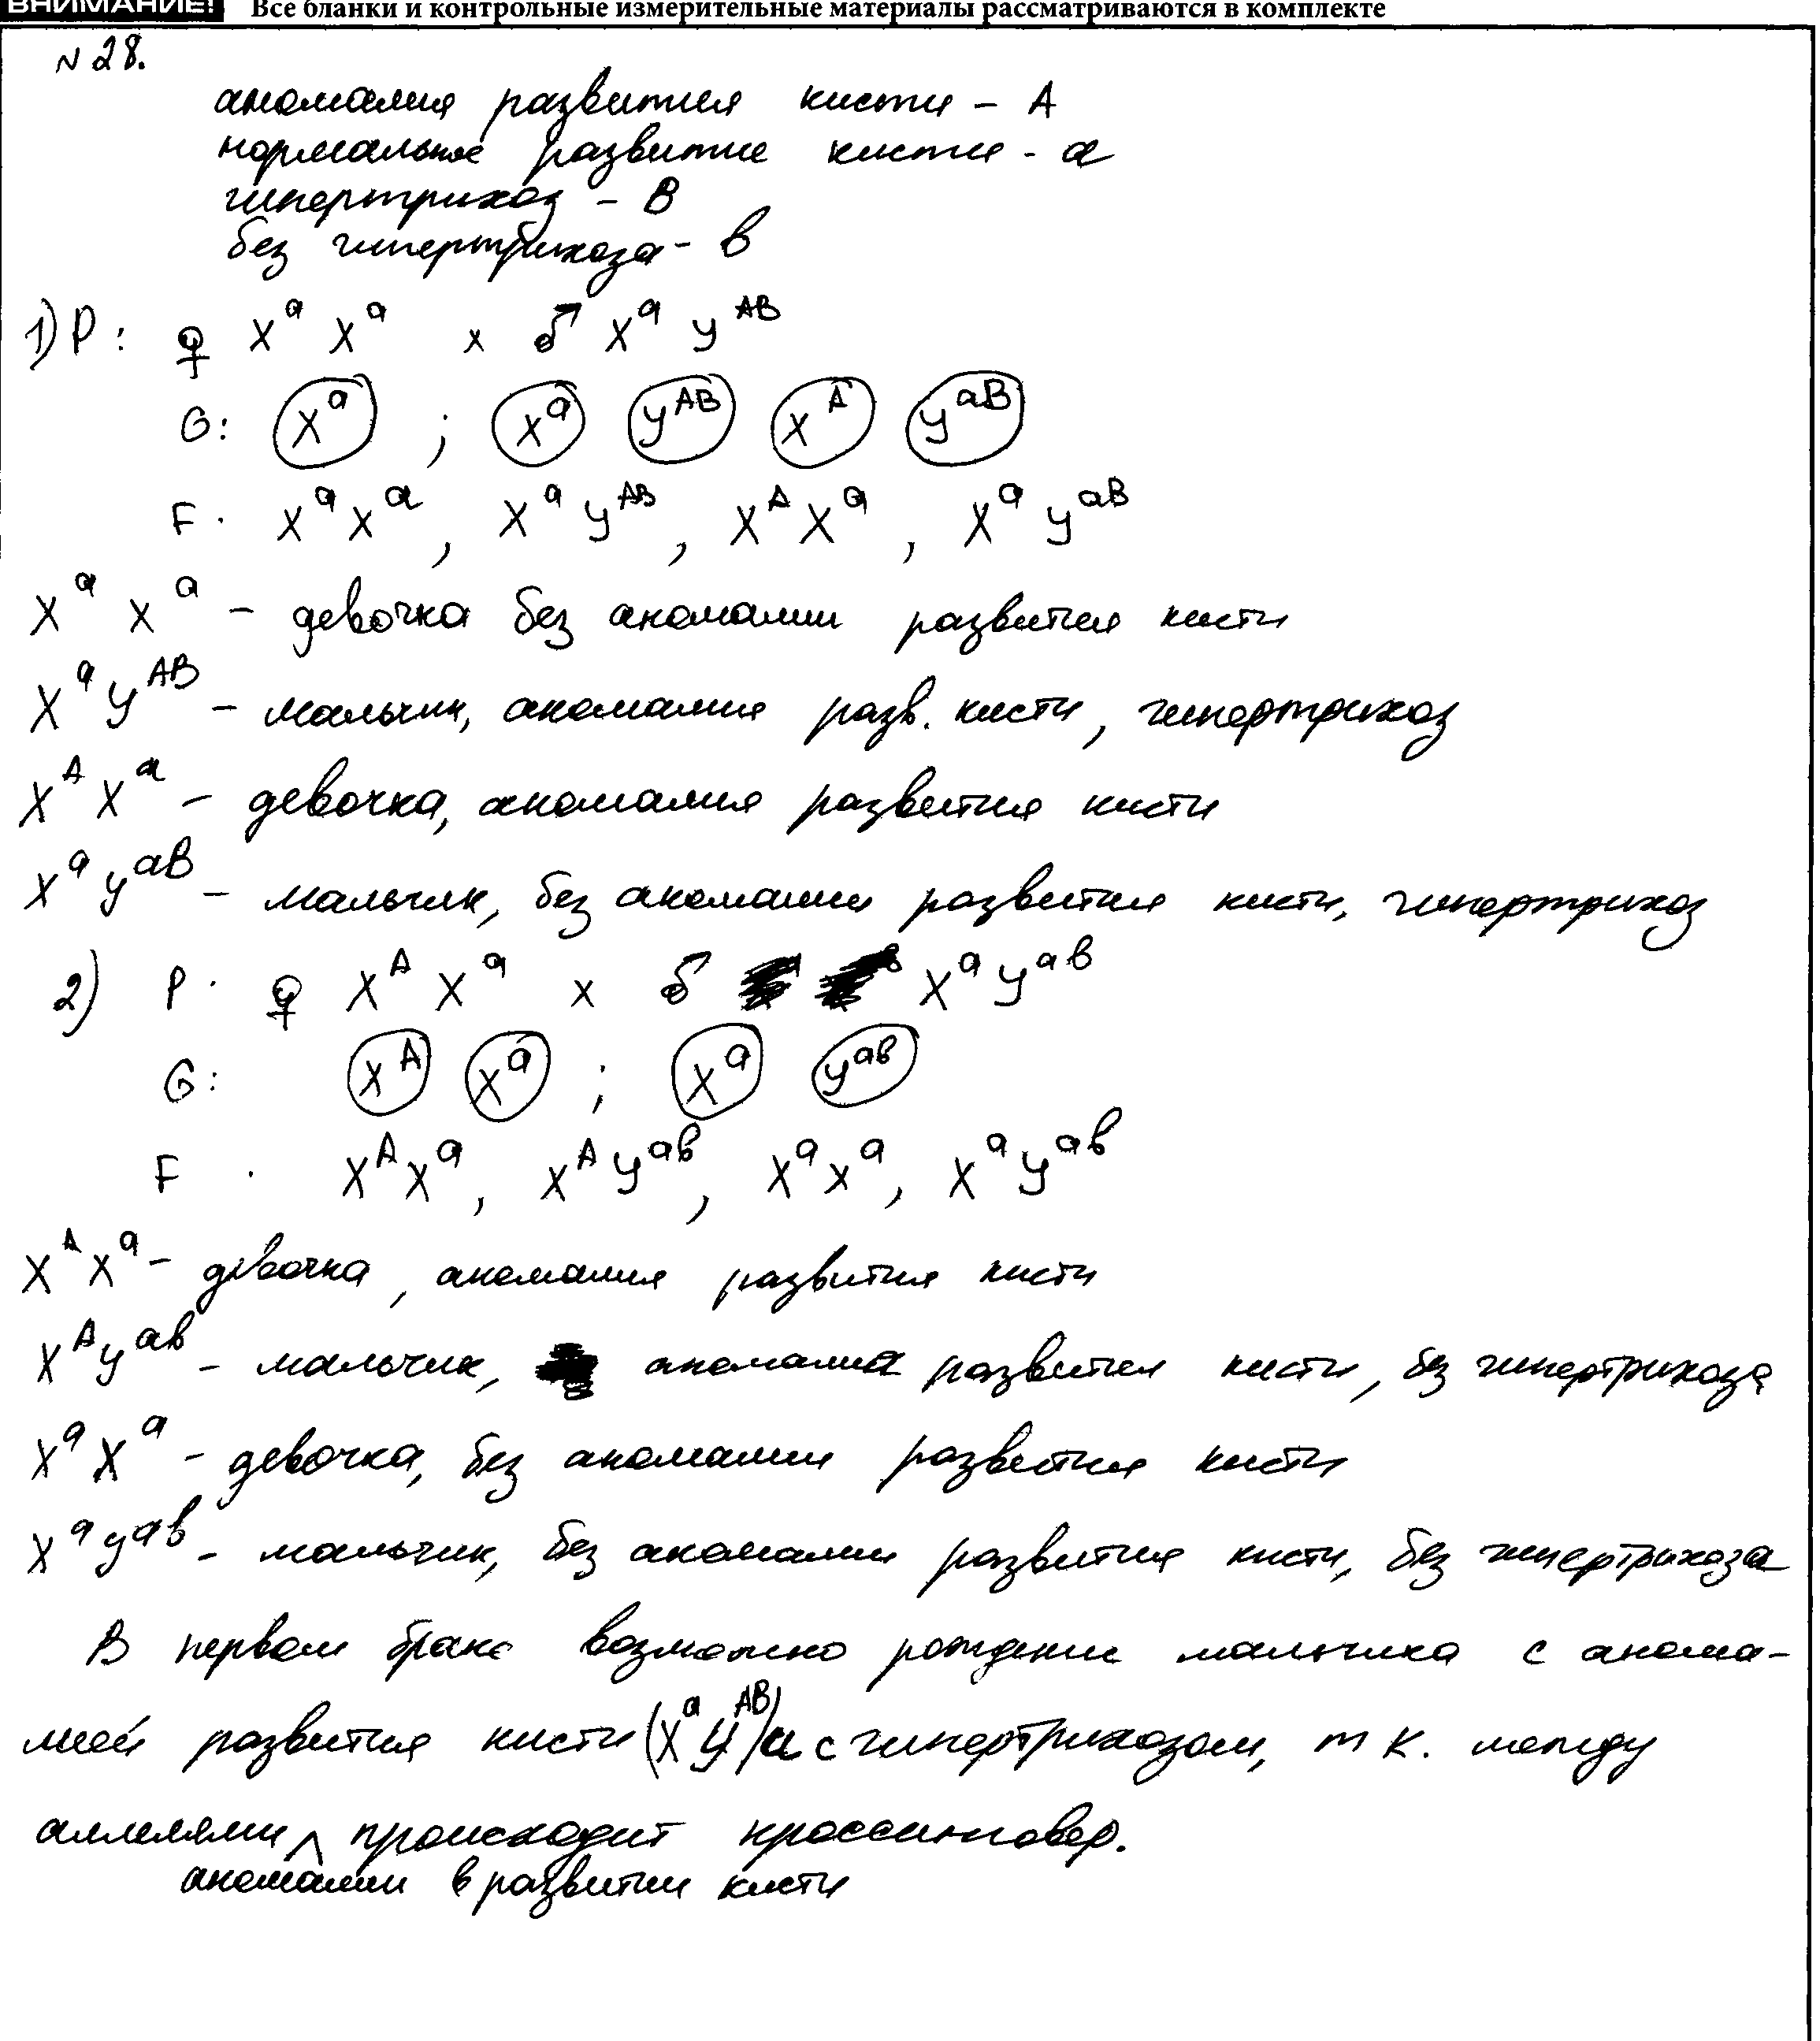 ВНИМАНИЕ! Все бланки и контрольные измерительные материалы рассматриваются в комплекте
N 28.
аномалия развития кисти – А
нормальное развитие кисти - а
гипертрихоз – В
без гипертрихоза - в
1) P: ♀ X^a X^a x ♂ X^a Y^AB
G: X^a ; X^a Y^AB X^A Y^aB
F: X^a X^a, X^a Y^AB, X^A X^a, X^a Y^aB
X^a X^a – девочка без аномалии развития кисти
X^a Y^AB – мальчик, аномалия разв. кисти, гипертрихоз
X^A X^a – девочка, аномалия развития кисти
X^a Y^aB – мальчик, без аномалии развития кисти, гипертрихоз
2) P: ♀ X^A X^a x ♂ X^a Y^ав
G: X^A X^a ; X^a Y^ав
F: X^A X^a, X^A Y^ав, X^a X^a, X^a Y^ав
X^A X^a – девочка, аномалия развития кисти
X^A Y^ав – мальчик, аномалия развития кисти, без гипертрихоза
X^a X^a – девочка, без аномалии развития кисти
X^a Y^ав – мальчик, без аномалии развития кисти, без гипертрихоза
В первом браке возможно рождение мальчика с анома-
лией развития кисти (X^a Y^AB) и с гипертрихозом, т к. между
аллелями ^ происходит кроссинговер.
аномалии в развитии кисти